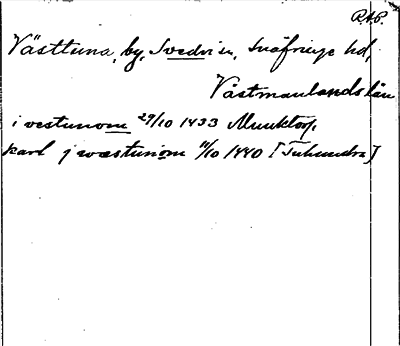 R.A.P.
Västtuna, by, Svedvi sn, Snäfringe hd,
Västmanlands län
i vestunom 29/10 1433 Munktorp,
karl j wæstunom 11/10 1440 [Tuhundra]